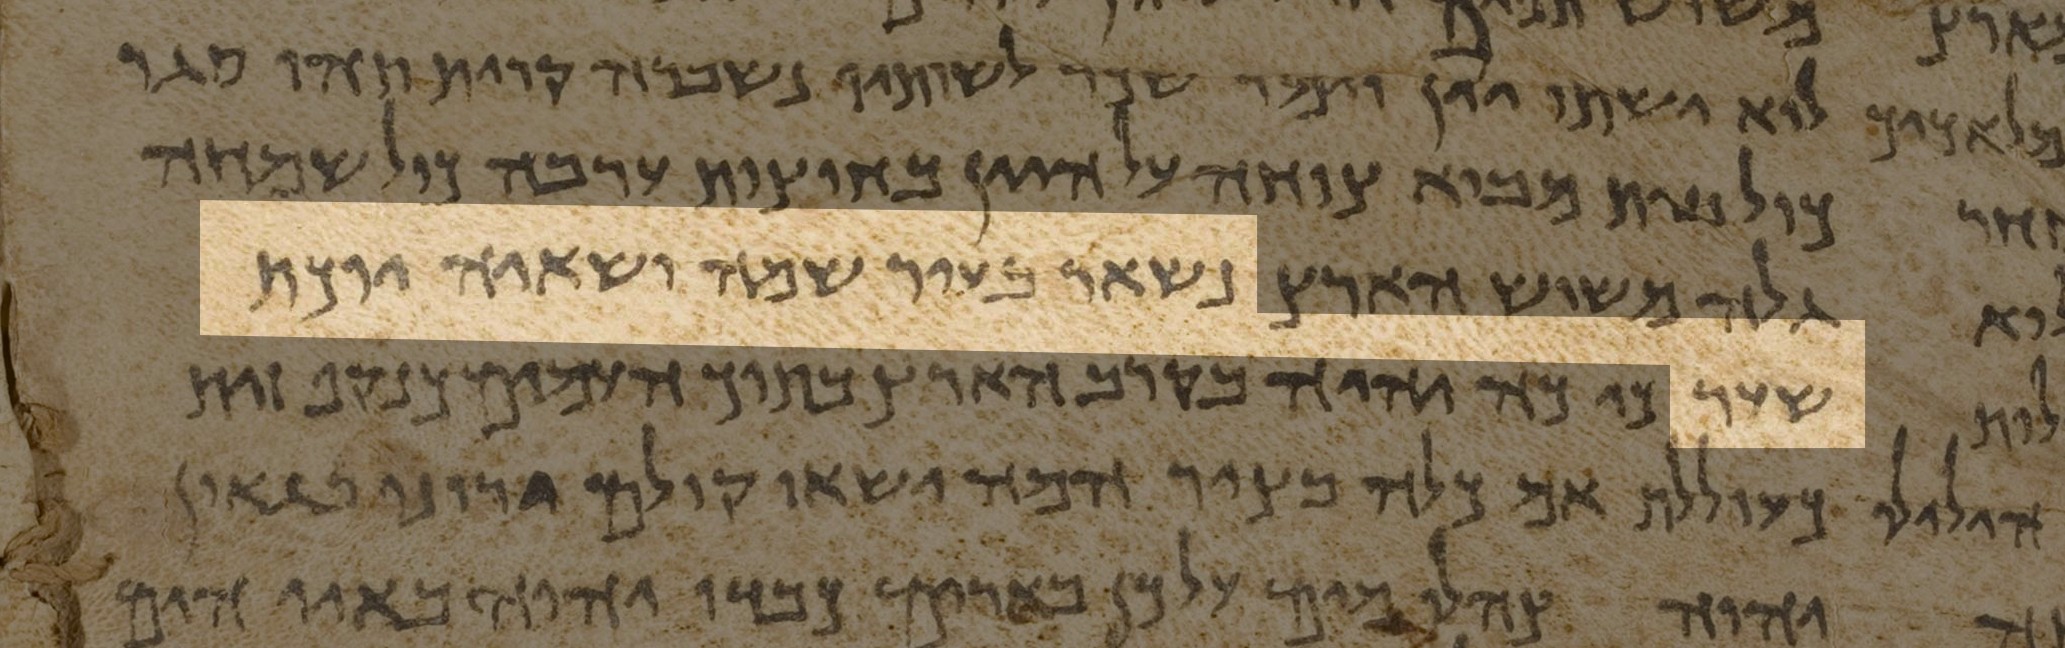 לוא ישתו יין וימר שכר לשותיו נשברה קרית תהו סגר
כול בית מבוא צוחה על היין בחוצות ערבה כול שמחה
גלה משוש הארץ נשאר בעיר שמה ושאיה יוכת
שער כי כה יהיה בקרב הארץ בתוך העמים כנקף זית
כעוללת אם כלה בציר המה ישאו קולם ירונו בגאון
יהוה צהלו מים על כן בארים כבדו יהוה באיי הים